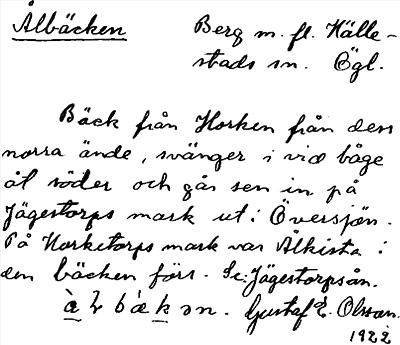 Ålbäcken
Berg m. fl. Hälle-
stads sn. Ögl.
Bäck från Horken från dess
norra ände, svänger i vid båge
åt söder och går sen in på
Jägestorps mark ut i Översjön.
På Horketorps mark var Ålkista i
den bäcken förr. Se: Jägestorpsån.
Gustaf E. Olsson.
1922